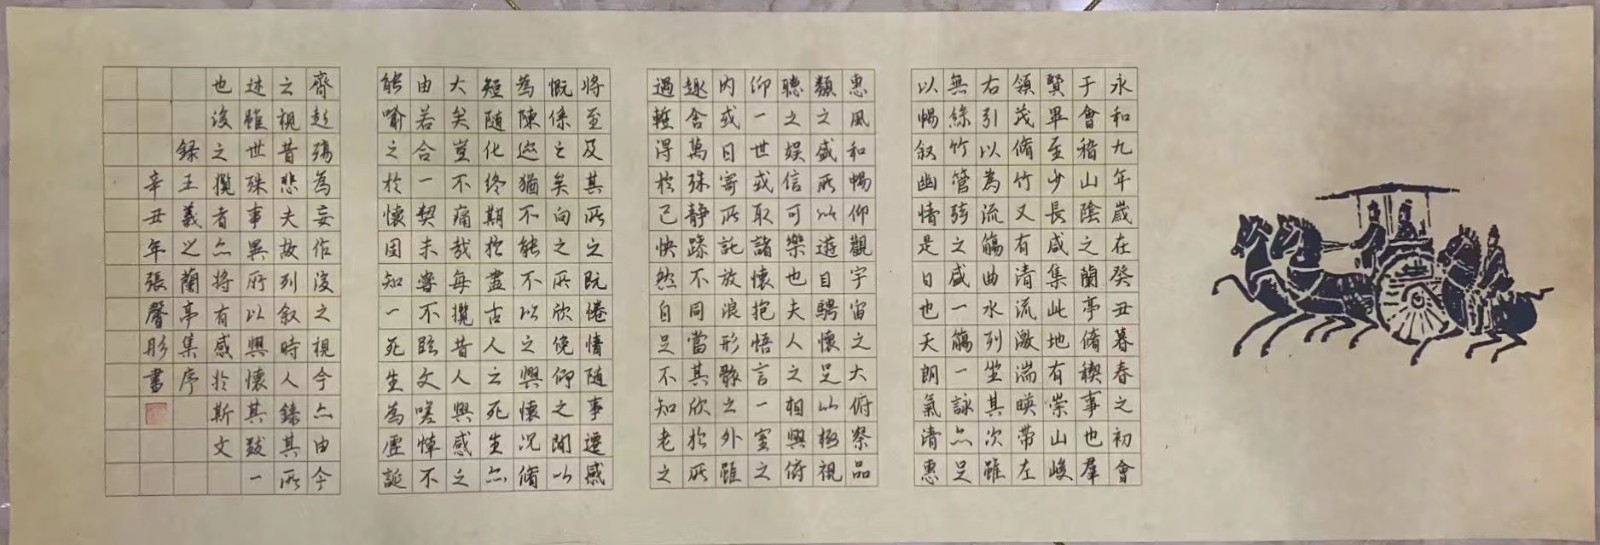 永和九年歲在癸丑暮春之初會
于會稽山陰之蘭亭脩稧事也羣
賢畢至少長咸集此地有崇山峻
領茂脩竹又有清流激湍暎帶左
右引以為流觴曲水列坐其次雖
無絲竹管弦之盛一觴一詠亦足
以暢叙幽情是日也天朗氣清惠
惠風和暢仰觀宇宙之大俯察品
類之盛所以遊目騁懷足以極視
聽之娛信可樂也夫人之相與俯
仰一世或取諸懷抱悟言一室之
內或因寄所託放浪形骸之外雖
趣舍萬殊静躁不同當其欣於所
遇暫得於己快然自足不知老之
將至及其所之既惓情隨事遷感
慨係之矣向之所欣俛仰之閒以
為陳迹猶不能不以之興懷況脩
短隨化終期於盡古人云死生亦
大矣豈不痛哉每攬昔人興感之
由若合一契未嘗不臨文嗟悼不
能喻之於懷固知一死生為虛誕
齊彭殤為妄作後之視今亦由今
之視昔悲夫故列叙時人錄其所
述雖世殊事異所以興懷其致一
也後之攬者亦將有感於斯文
錄王羲之蘭亭集序
辛丑年張馨彤書